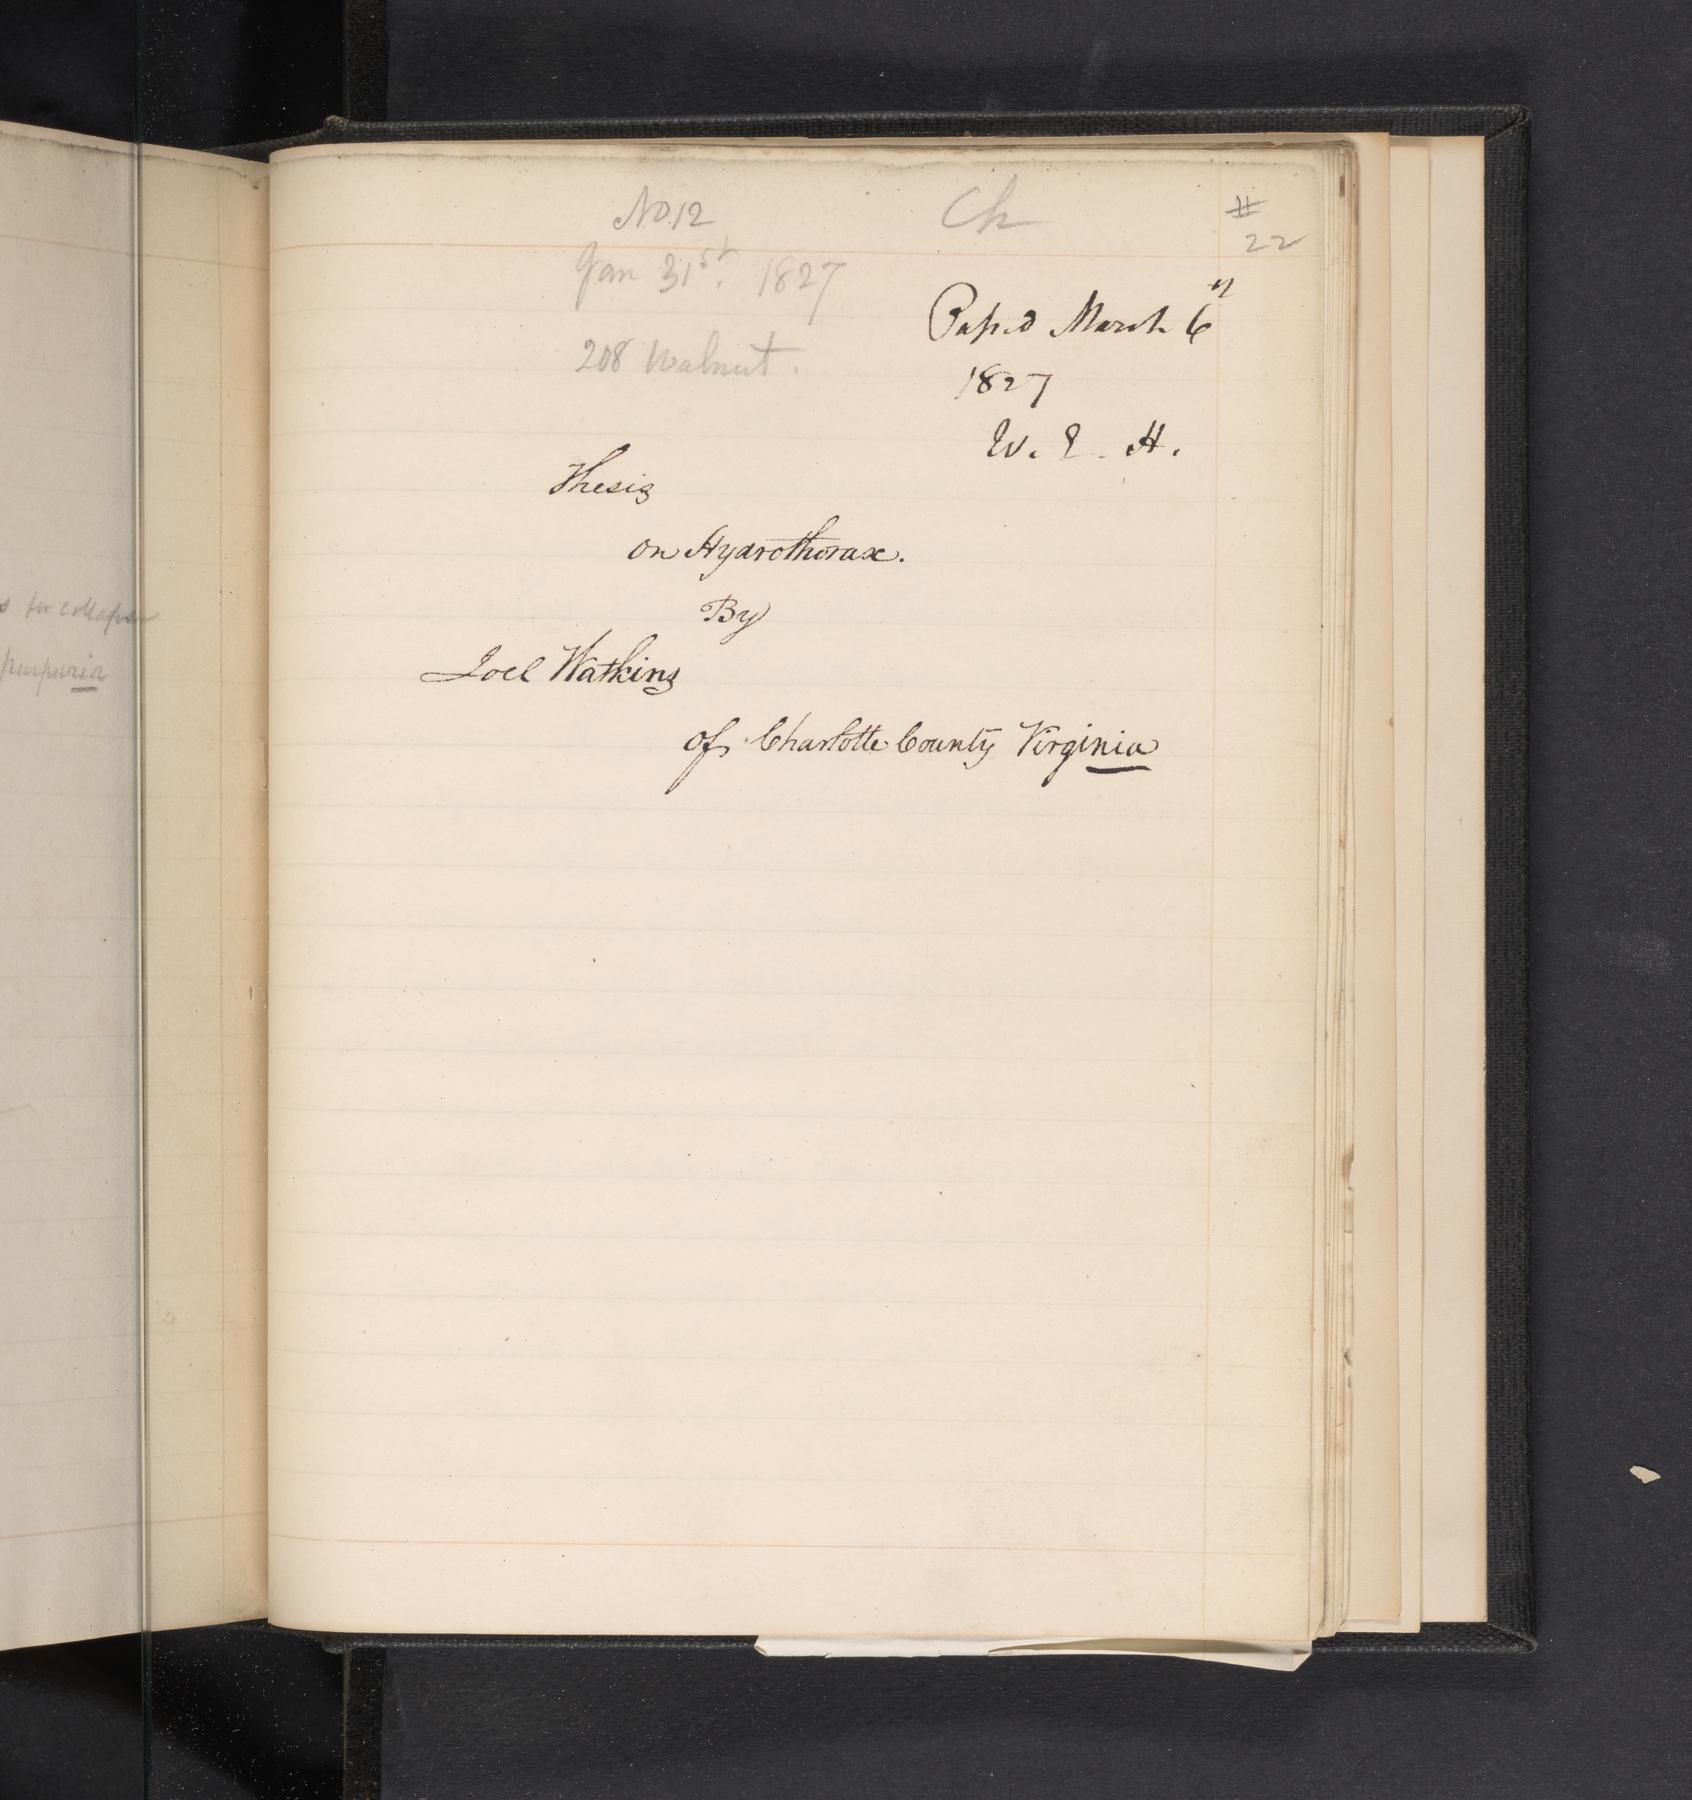 s for collapse
purpuria
No.12
Ch
#
22
Jan 31st. 1827
208 Walnut.
Passed March 6th
1827
W. E. H.
Thesis
on Hydrothorax.
By
Joel Watkins
of Charlotte County Virginia